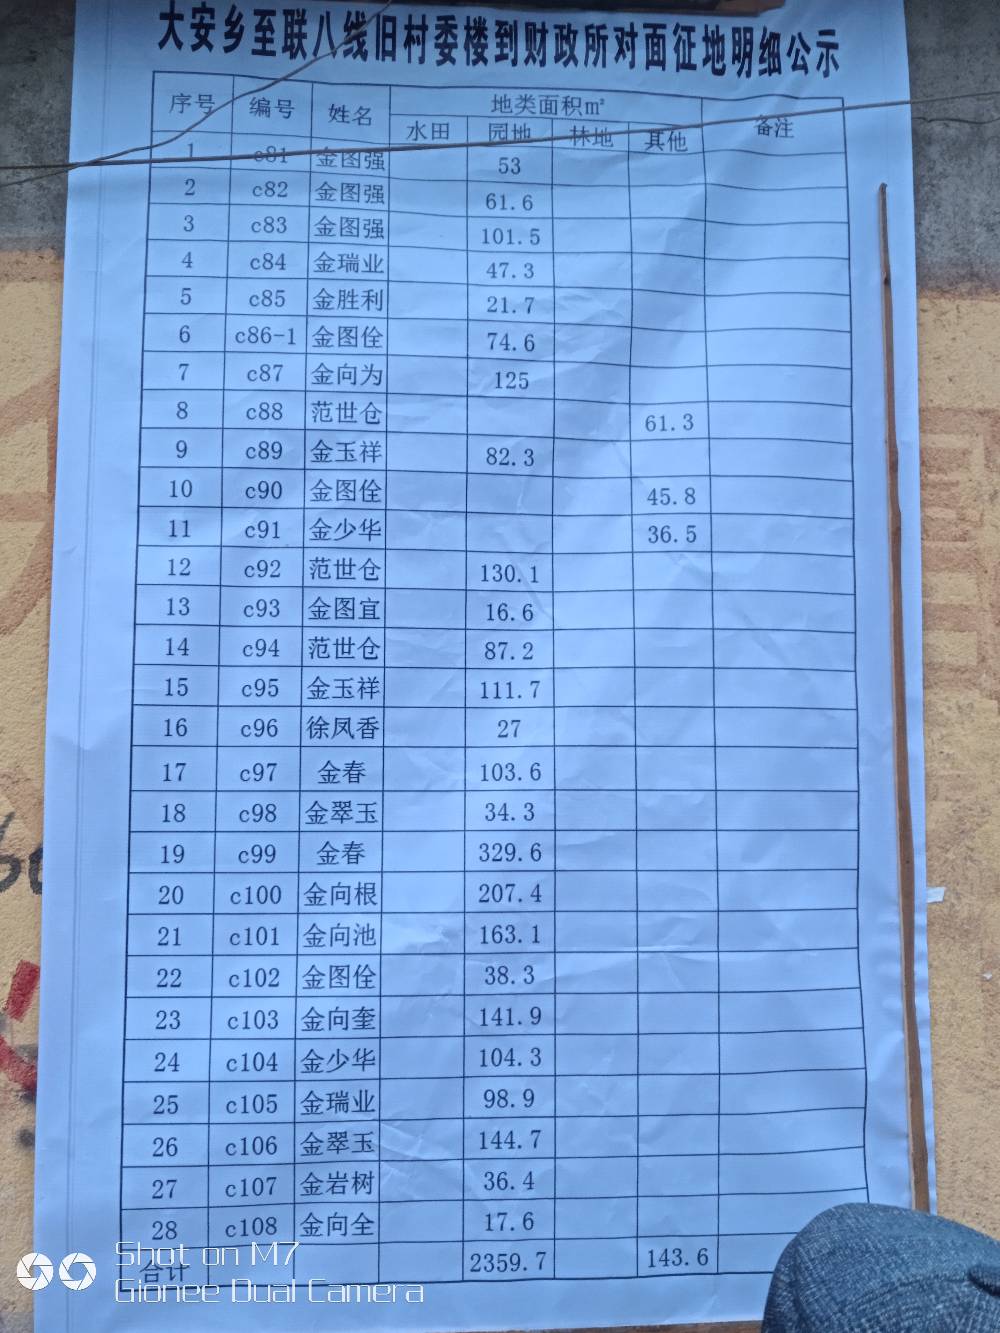 大安乡至联八线旧村委楼到财政所对面征地明细公示
序号 编号 姓名 地类面积㎡ 备注
水田 园地 林地 其他
1 c81 金图强 53
2 c82 金图强 61.6
3 c83 金图强 101.5
4 c84 金瑞业 47.3
5 c85 金胜利 21.7
6 c86-1 金图佺 74.6
7 c87 金向为 125
8 c88 范世仓 61.3
9 c89 金玉祥 82.3
10 c90 金图佺 45.8
11 c91 金少华 36.5
12 c92 范世仓 130.1
13 c93 金图宜 16.6
14 c94 范世仓 87.2
15 c95 金玉祥 111.7
16 c96 徐凤香 27
17 c97 金春 103.6
18 c98 金翠玉 34.3
19 c99 金春 329.6
20 c100 金向根 207.4
21 c101 金向池 163.1
22 c102 金图佺 38.3
23 c103 金向奎 141.9
24 c104 金少华 104.3
25 c105 金瑞业 98.9
26 c106 金翠玉 144.7
27 c107 金岩树 36.4
28 c108 金向全 17.6
合计 2359.7 143.6
Shot on M7
Gionee Dual Camera